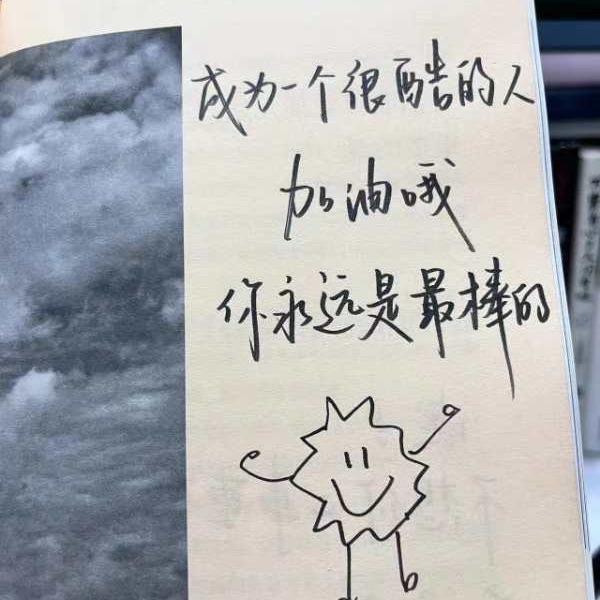 成为一个很酷的人
加油哦
你永远是最棒的